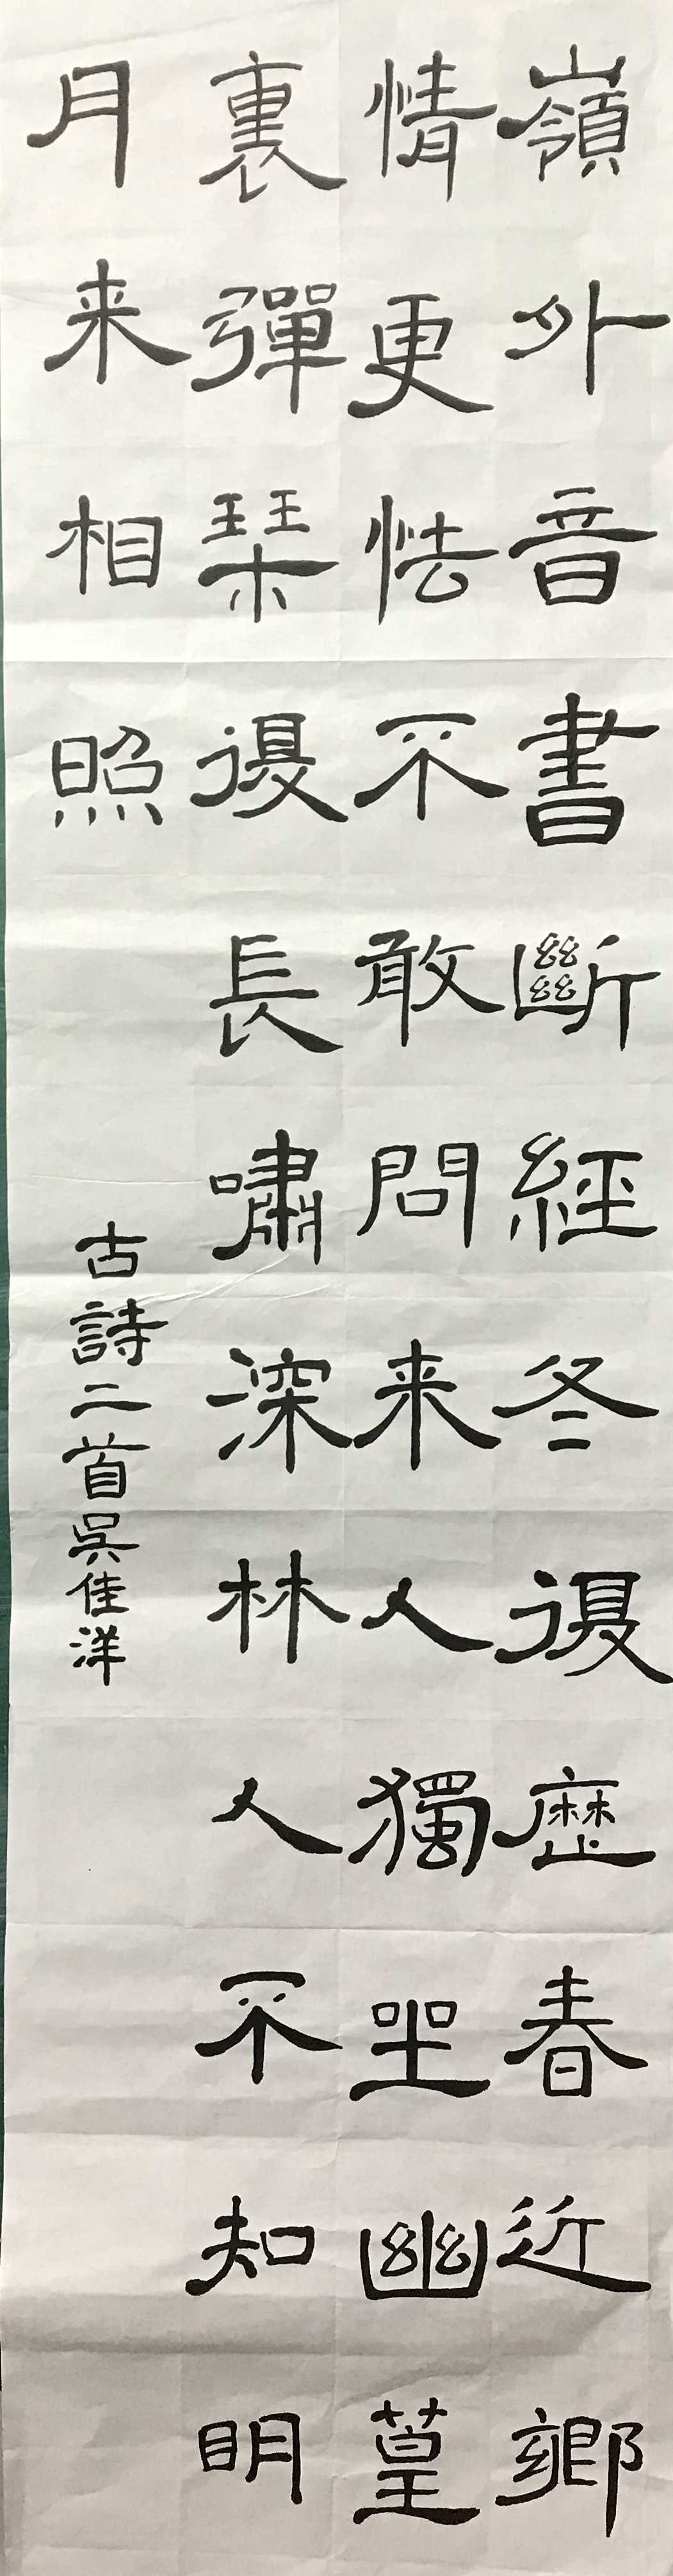 嶺外音書斷經冬復歷春近鄉
情更怯不敢問来人獨坐幽篁
裏彈琹復長嘯深林人不知明
月来相照
古詩二首吳佳洋